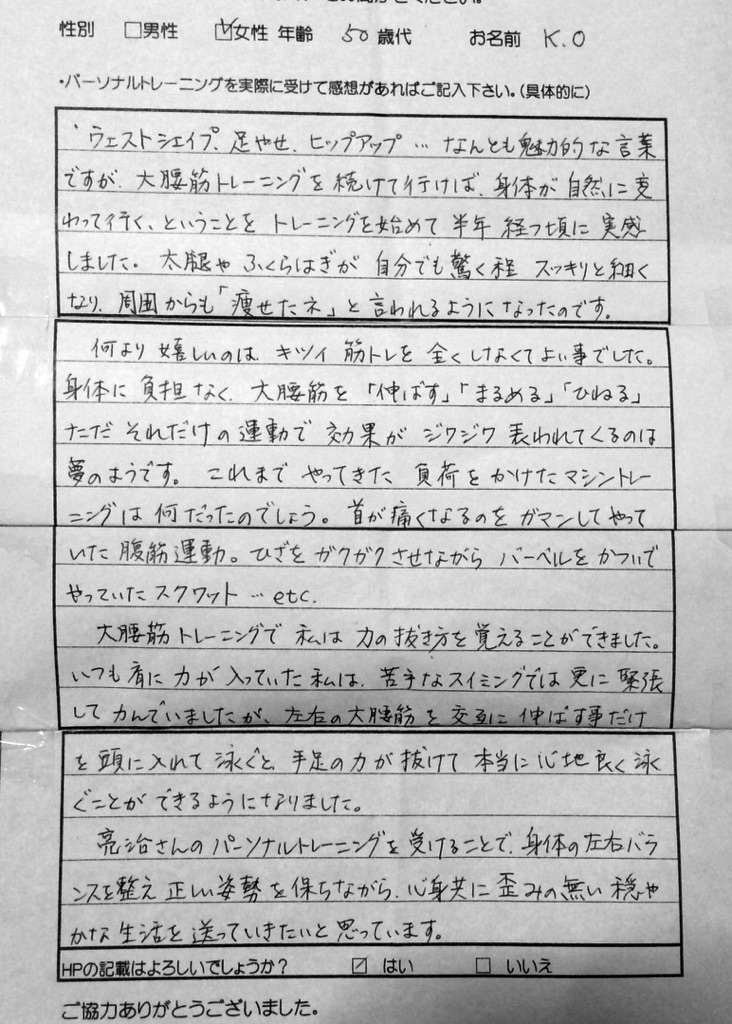 ください。
性別 □男性 ☑女性 年齢 50 歳代 お名前 K.O
・パーソナルトレーニングを実際に受けて感想があればご記入下さい。(具体的に)
ウェストシェイプ、足やせ、ヒップアップ…なんとも魅力的な言葉
ですが、大腰筋トレーニングを続けて行けば、身体が自然に変
わって行く、ということをトレーニングを始めて半年経つ頃に実感
しました。太腿やふくらはぎが自分でも驚く程スッキリと細く
なり、周囲からも「痩せたネ」と言われるようになったのです。
何より嬉しいのは、キツイ筋トレを全くしなくてよい事でした。
身体に負担なく、大腰筋を「伸ばす」「まるめる」「ひねる」
ただそれだけの運動で効果がジワジワ表われてくるのは
夢のようです。これまでやってきた負荷をかけたマシントレー
ニングは何だったのでしょう。首が痛くなるのをガマンしてやって
いた腹筋運動。ひざをガクガクさせながらバーベルをかついで
やっていたスクワット…etc.
大腰筋トレーニングで私は力の抜き方を覚えることができました。
いつも肩に力が入っていた私は、苦手なスイミングでは更に緊張
して力んでいましたが、左右の大腰筋を交互に伸ばす事だけ
を頭に入れて泳ぐと、手足の力が抜けて本当に心地良く泳
ぐことができるようになりました。
亮治さんのパーソナルトレーニングを受けることで、身体の左右バラ
ンスを整え正しい姿勢を保ちながら、心身共に歪みの無い穏や
かな生活を送っていきたいと思っています。
HPの記載はよろしいでしょうか？ ☑ はい □ いいえ
ご協力ありがとうございました。